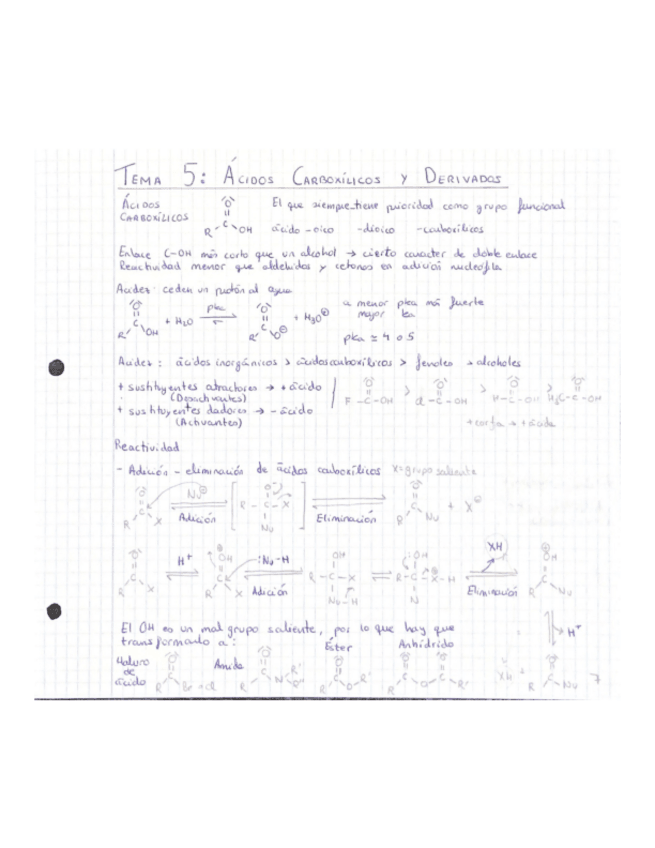 TEMA 5: ÁCIDOS CARBOXÍLICOS Y DERIVADOS
ÁCIDOS CARBOXÍLICOS
El que siempre tiene prioridad como grupo funcional
ácido -oico -dioico -carboxílicos
Enlace C-OH más corto que un alcohol → cierto caracter de doble enlace
Reactividad menor que aldehidos y cetonas en adición nucleófila
Acidez: ceden un protón al agua
+ H2O pka + H3O⊕
a menor pka más fuerte
mayor ka
pka ≃ 4 o 5
Acidez: ácidos inorgánicos > ácidos carboxílicos > fenoles > alcoholes
+ sustituyentes atractores → + ácido
(Desactivantes)
+ sustituyentes dadores → - ácido
(Activantes)
F-C-OH > Cl-C-OH > H-C-OH > H3C-C-OH
Reactividad
- Adición - eliminación de ácidos carboxílicos X=grupo saliente
Nu⊖ Adición Eliminación + X⊖
H+ :Nu-H Adición XH Eliminación
H+
El OH es un mal grupo saliente, por lo que hay que
transformarlo a:
Haluro de ácido
Amida
Éster
Anhídrido
XH +
7